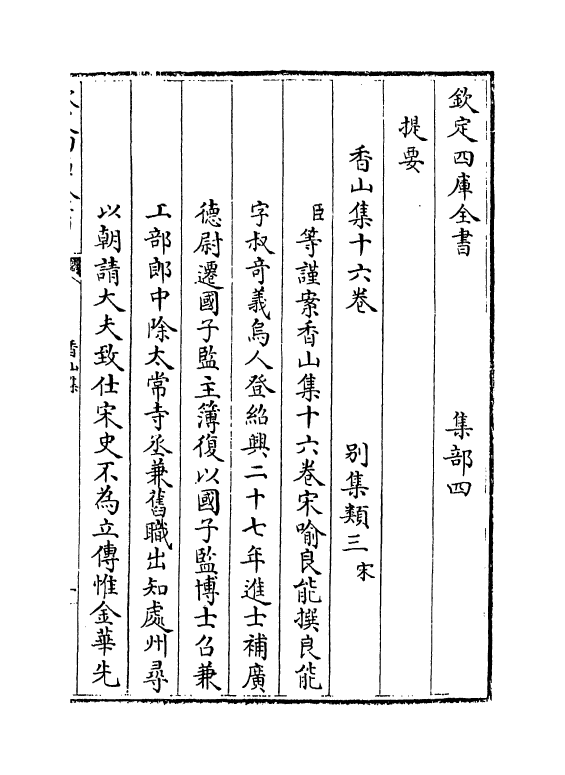 欽定四庫全書　　　　　集部四
提要
香山集十六卷　　　別集類三宋
臣等謹案香山集十六卷宋喻良能撰良能
字叔奇義烏人登紹興二十七年進士補廣
德尉遷國子監主簿復以國子監博士召兼
工部郎中除太常寺丞兼舊職出知處州尋
以朝請大夫致仕宋史不為立傳惟金華先
香山集